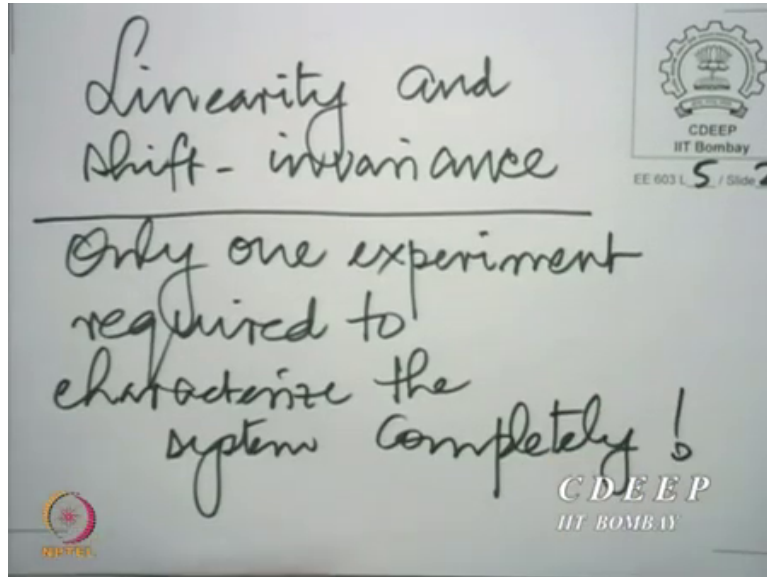 Linearity and
shift-invariance
Only one experiment
required to
characterize the
system completely!
CDEEP
IIT Bombay
EE 603 L 5 / Slide 2
CDEEP
IIT BOMBAY
NPTEL